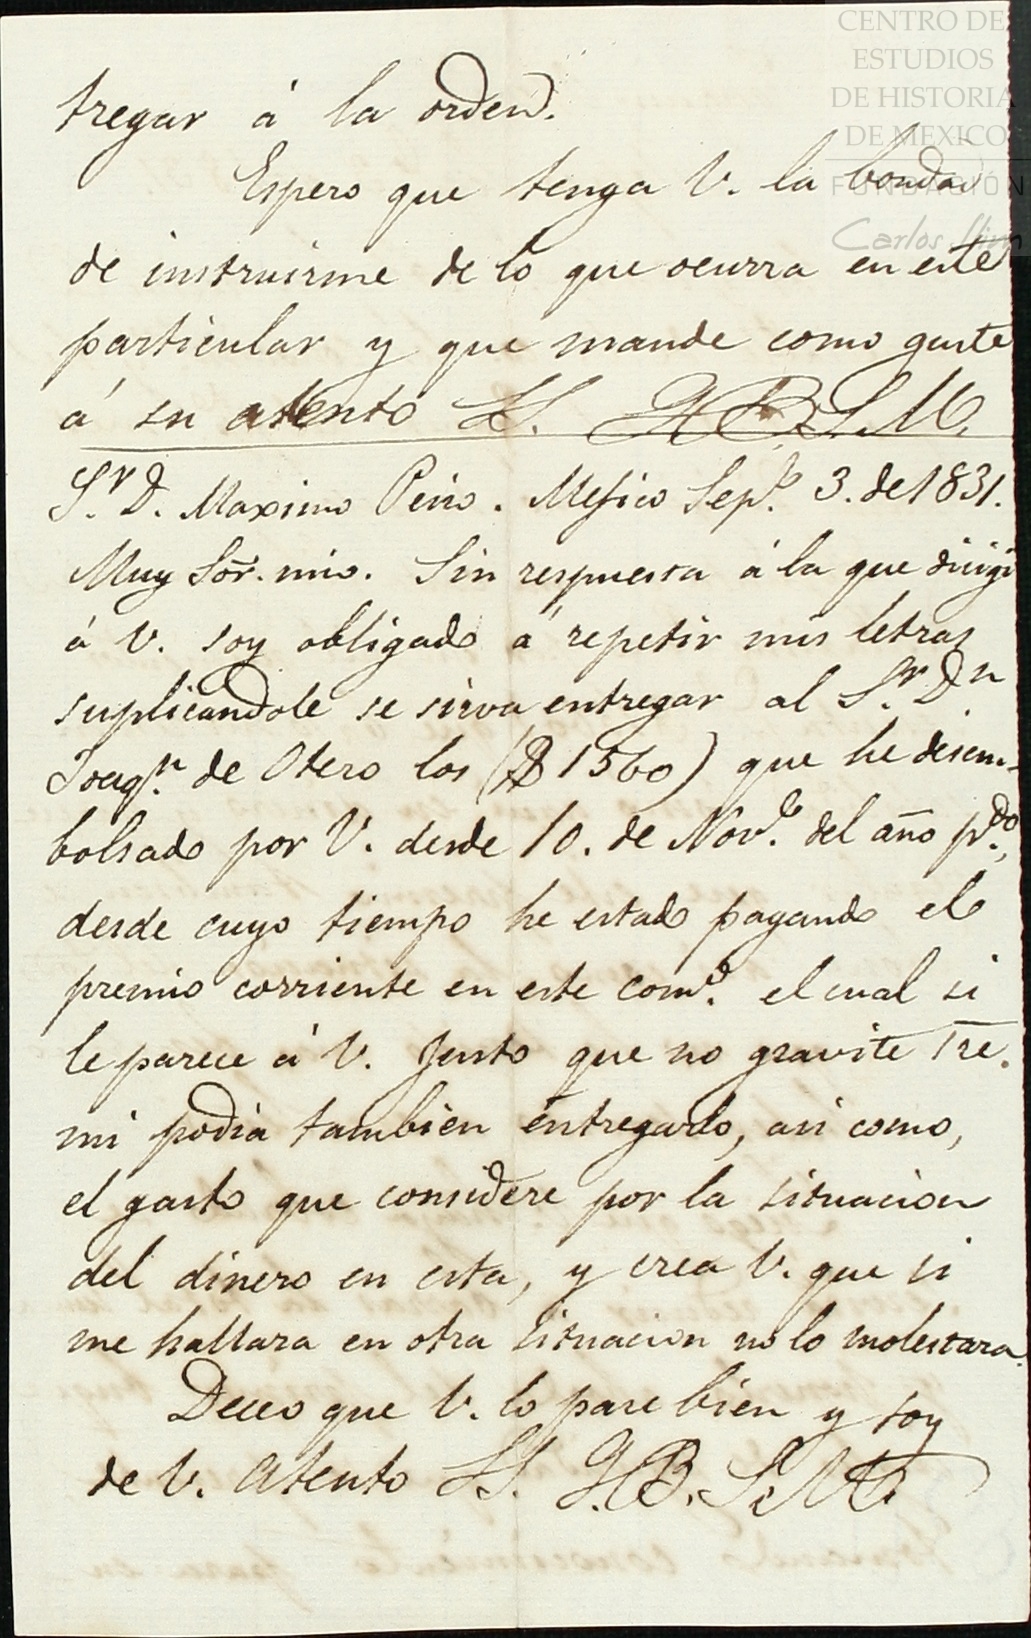 CENTRO DE
ESTUDIOS
DE HISTORIA
DE MEXICO
FUNDACIÓN
Carlos Slim
tregar á la orden.
Espero que tenga V. la bondad
de instruirme de lo que ocurra en este
particular y que mande como guste
á su atento S.S. Q.B.S.M.
Sr. D. Maximo Peiro. Mejico Sepe. 3. de 1831.
Muy Sor. mio. Sin respuesta á la que dirigi
á V. soy obligado á repetir mis letras
suplicandole se sirva entregar al Sr. Dn
Joaqn. de Otero los ($ 1560) que he desem-
bolsado por V. desde 10. de Nove. del año pdo.,
desde cuyo tiempo he estado pagando el
premio corriente en este como. el cual si
le parece á V. justo que no gravite sre.
mi podia tambien entregarlo, asi como,
el gasto que considere por la situacion
del dinero en esta, y crea V. que si
me hallara en otra situacion no lo molestara.
Deceo que V. lo pase bien y soy
de V. atento S.S. Q.B.S.M.